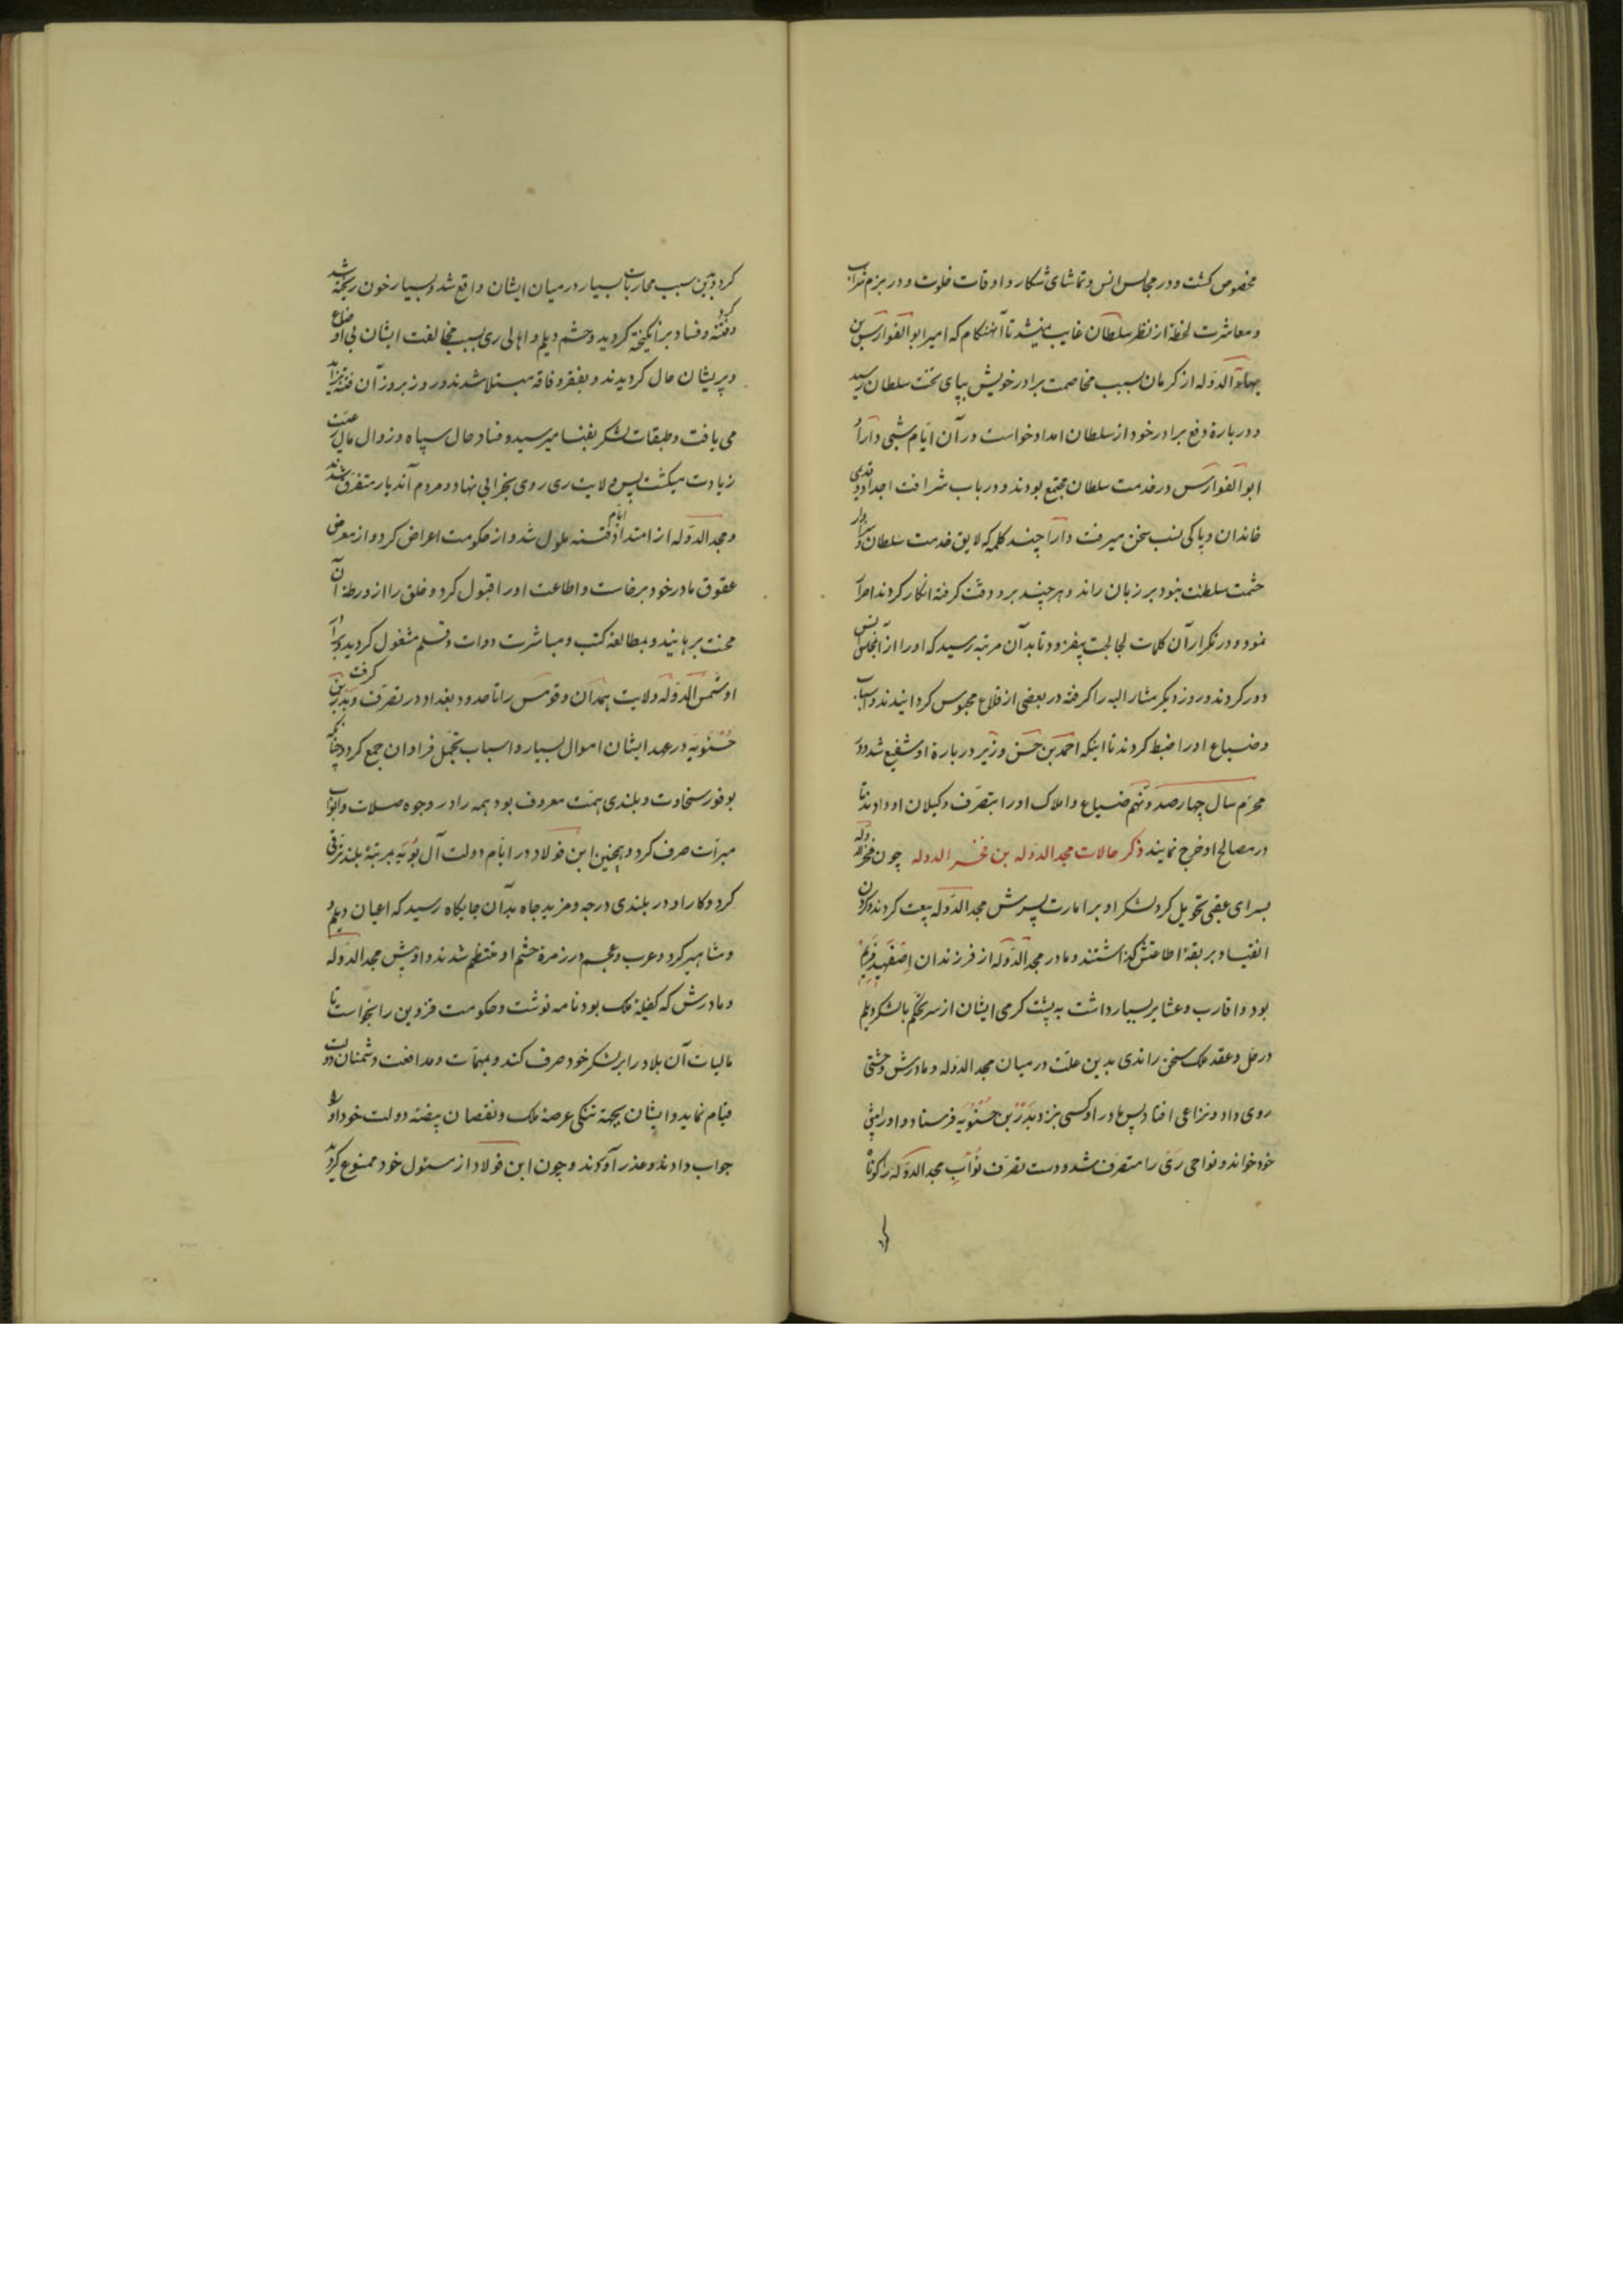 مخصوص کشت و در مجالس انس و تماشای شکار و اوقات خلوت و در بزم شراب
و معاشرت لحظهٔ از نظر سلطان غایب نمیشد تا آنهنکام که امیر ابوالفوارس بن
بهاء الدوله از کرمان بسبب مخاصمت برادر خویش بپای تخت سلطان رسید
و در بارهٔ دفع برادر خود از سلطان امداد خواست در آن ایام شبی دارا و
ابوالفوارس در خدمت سلطان مجتمع بودند و در باب شرافت اجداد و قدیمی
خاندان و پاکی نسب سخن میرفت دارا چند کلمه که لایق خدمت سلطان و سزاوار
حشمت سلطنت نبود بر زبان راند و هر چند برو دقت کرفته انکار کردند اصرار
نمود و در تکرار آن کلمات لجاجت بیفزود تا بدآن مرتبه رسید که او را از آنمجلس انس
دور کردند و روز دیکر مشار الیه را کرفته در بعضی از قلاع محبوس کردانیدند و اسباب
و ضیاع او را ضبط کردند تا اینکه احمد بن حسن وزیر در بارهٔ او شفیع شد و در
محرم سال چهار صد و نهم ضیاع و املاک او را بتصرف وکیلان او دادند تا
در مصالح او خرج نمایند ذکر حالات مجد الدوله بن فخر الدوله چون فخر الدوله
بسرای عقبی تحویل کرد لشکر او بر امارت پسرش مجد الدوله بیعت کردند و کردن
انقیاد بربقهٔ اطاعتش کذاشتند و مادر مجد الدوله از فرزندان اصفهبد فریم
بود و اقارب و عشایر بسیار داشت به پشت کرمی ایشان از سر تحکم با لشکر دیلم
در حل و عقد ملک سخن راندی بدین علت در میان مجد الدوله و مادرش وحشتی
روی داد و نزاعی افتاد پس مادر او کسی بنزد بدر بن حسنویه فرستاد و او را پیش
خود خواند و نواحی ری را متصرف شد و دست تصرف نواب مجد الدوله را کوتاه
کرد و بدین سبب محاربات بسیار در میان ایشان واقع شد و بسیار خون ریخته شد
و فتنه و فساد برانکیخته کردید و حشم دیلم و اهالی ری بسبب مخالفت ایشان بی اوضاع
و پریشان حال کردیدند و بفقر و فاقه مبتلا شدند و روز بروز آن فتنه تزاید
می یافت و طبقات لشکر بفنا میرسید و فساد حال سپاه و زوال مال رعیت
زیادت میکشت پس ولایت ری روی بخرابی نهاد و مردم آندیار متفرق شدند
و مجد الدوله از امتداد ایام فتنه ملول شد و از حکومت اعراض کرد و از معرض
عقوق مادر خود برخاست و اطاعت او را قبول کرد و خلق را از ورطهٔ آن
محنت برهانید و بمطالعه کتب و مباشرت دوات و قلم مشغول کردید و برادر
او شمس الدوله ولایت همدان و قومس را تا حدود بغداد در تصرف کرفت و بدر بن
حسنویه در عهد ایشان اموال بسیار و اسباب تجمل فراوان جمع کرد و چنانکه
بوفور سخاوت و بلندی همت معروف بود همه را در وجوه صلات و ابواب
مبرات صرف کرد و همچنین ابن فولاد در ایام دولت آل بویه بمرتبهٔ بلند ترقی
کرد و کار او در بلندی درجه و مزید جاه بدآن جایکاه رسید که اعیان دیلم و
و مشاهیر کرد و عرب و عجم در زمرهٔ حشم او منتظم شدند و او پیش مجد الدوله
و مادرش که کفیله ملک بود نامه نوشت و حکومت قزوین را بخواست تا
مالیات آن بلاد را بر لشکر خود صرف کند و بمهمات و مدافعت دشمنان دولت
قیام نماید و ایشان بجهة تنکی عرصهٔ ملک و نقصان بیضهٔ دولت خود او را
جواب دادند و عذر آوردند و چون ابن فولاد از مسئول خود ممنوع کردید